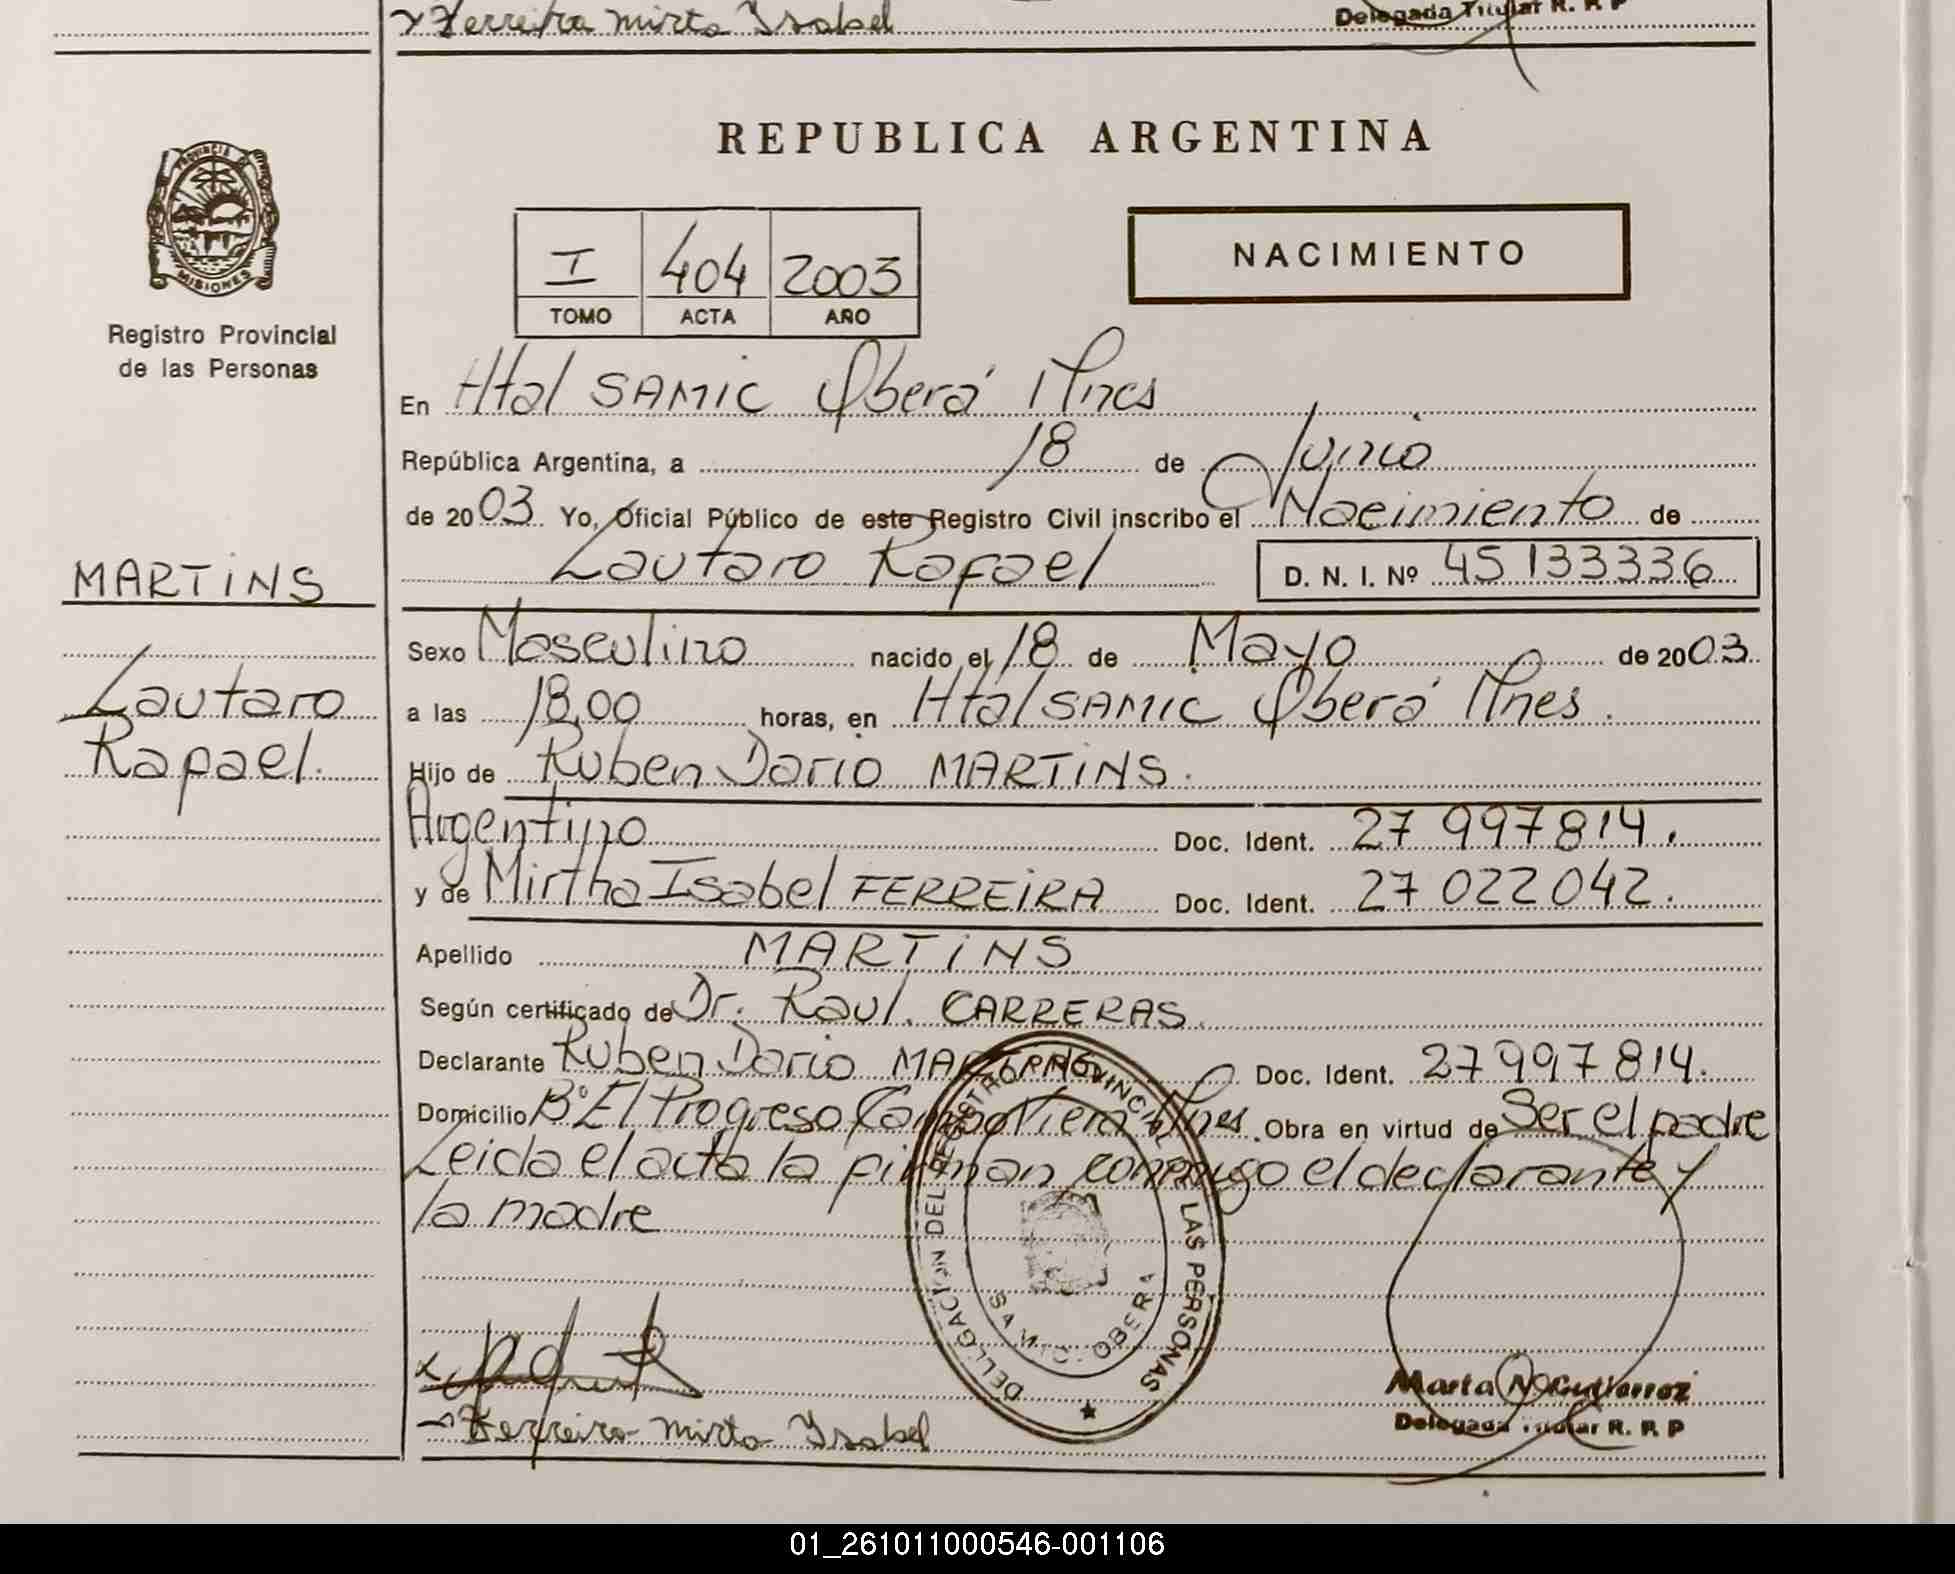 Ferreira Mirta Isabel
Delegada Titular R. P. P
PROVINCIA DE
MISIONES
Registro Provincial
de las Personas
REPUBLICA ARGENTINA
I 404 2003
TOMO ACTA AÑO
NACIMIENTO
En Htal SAMIC Oberá Mnes
República Argentina, a 18 de Junio
de 2003 Yo, Oficial Público de este Registro Civil inscribo el Nacimiento de
Lautaro Rafael D. N. I. Nº 45 133336
MARTiNS
Lautaro
Rafael.
Sexo Masculino nacido el 18 de Mayo de 2003
a las 18,00 horas, en Htal SAMIC Oberá Mnes.
Hijo de Ruben Dario MARTiNS.
Argentino Doc. Ident. 27 997814.
y de Mirtha Isabel FERREiRA Doc. Ident. 27 022042.
Apellido MARTiNS
Según certificado de Dr. Raul. CARRERAS.
Declarante Ruben Dario MARTiNS Doc. Ident. 27997814.
Domicilio Bº El Progreso Campo Viera Mnes. Obra en virtud de Ser el padre
Leida el acta la firman conmigo el declarante y
la madre
DELEGACION DEL REGISTRO PROVINCIAL DE LAS PERSONAS
SAMIC - OBERA
Ferreira Mirta Isabel
Marta N. Gutierrez
Delegada Titular R. P. P
01_261011000546-001106